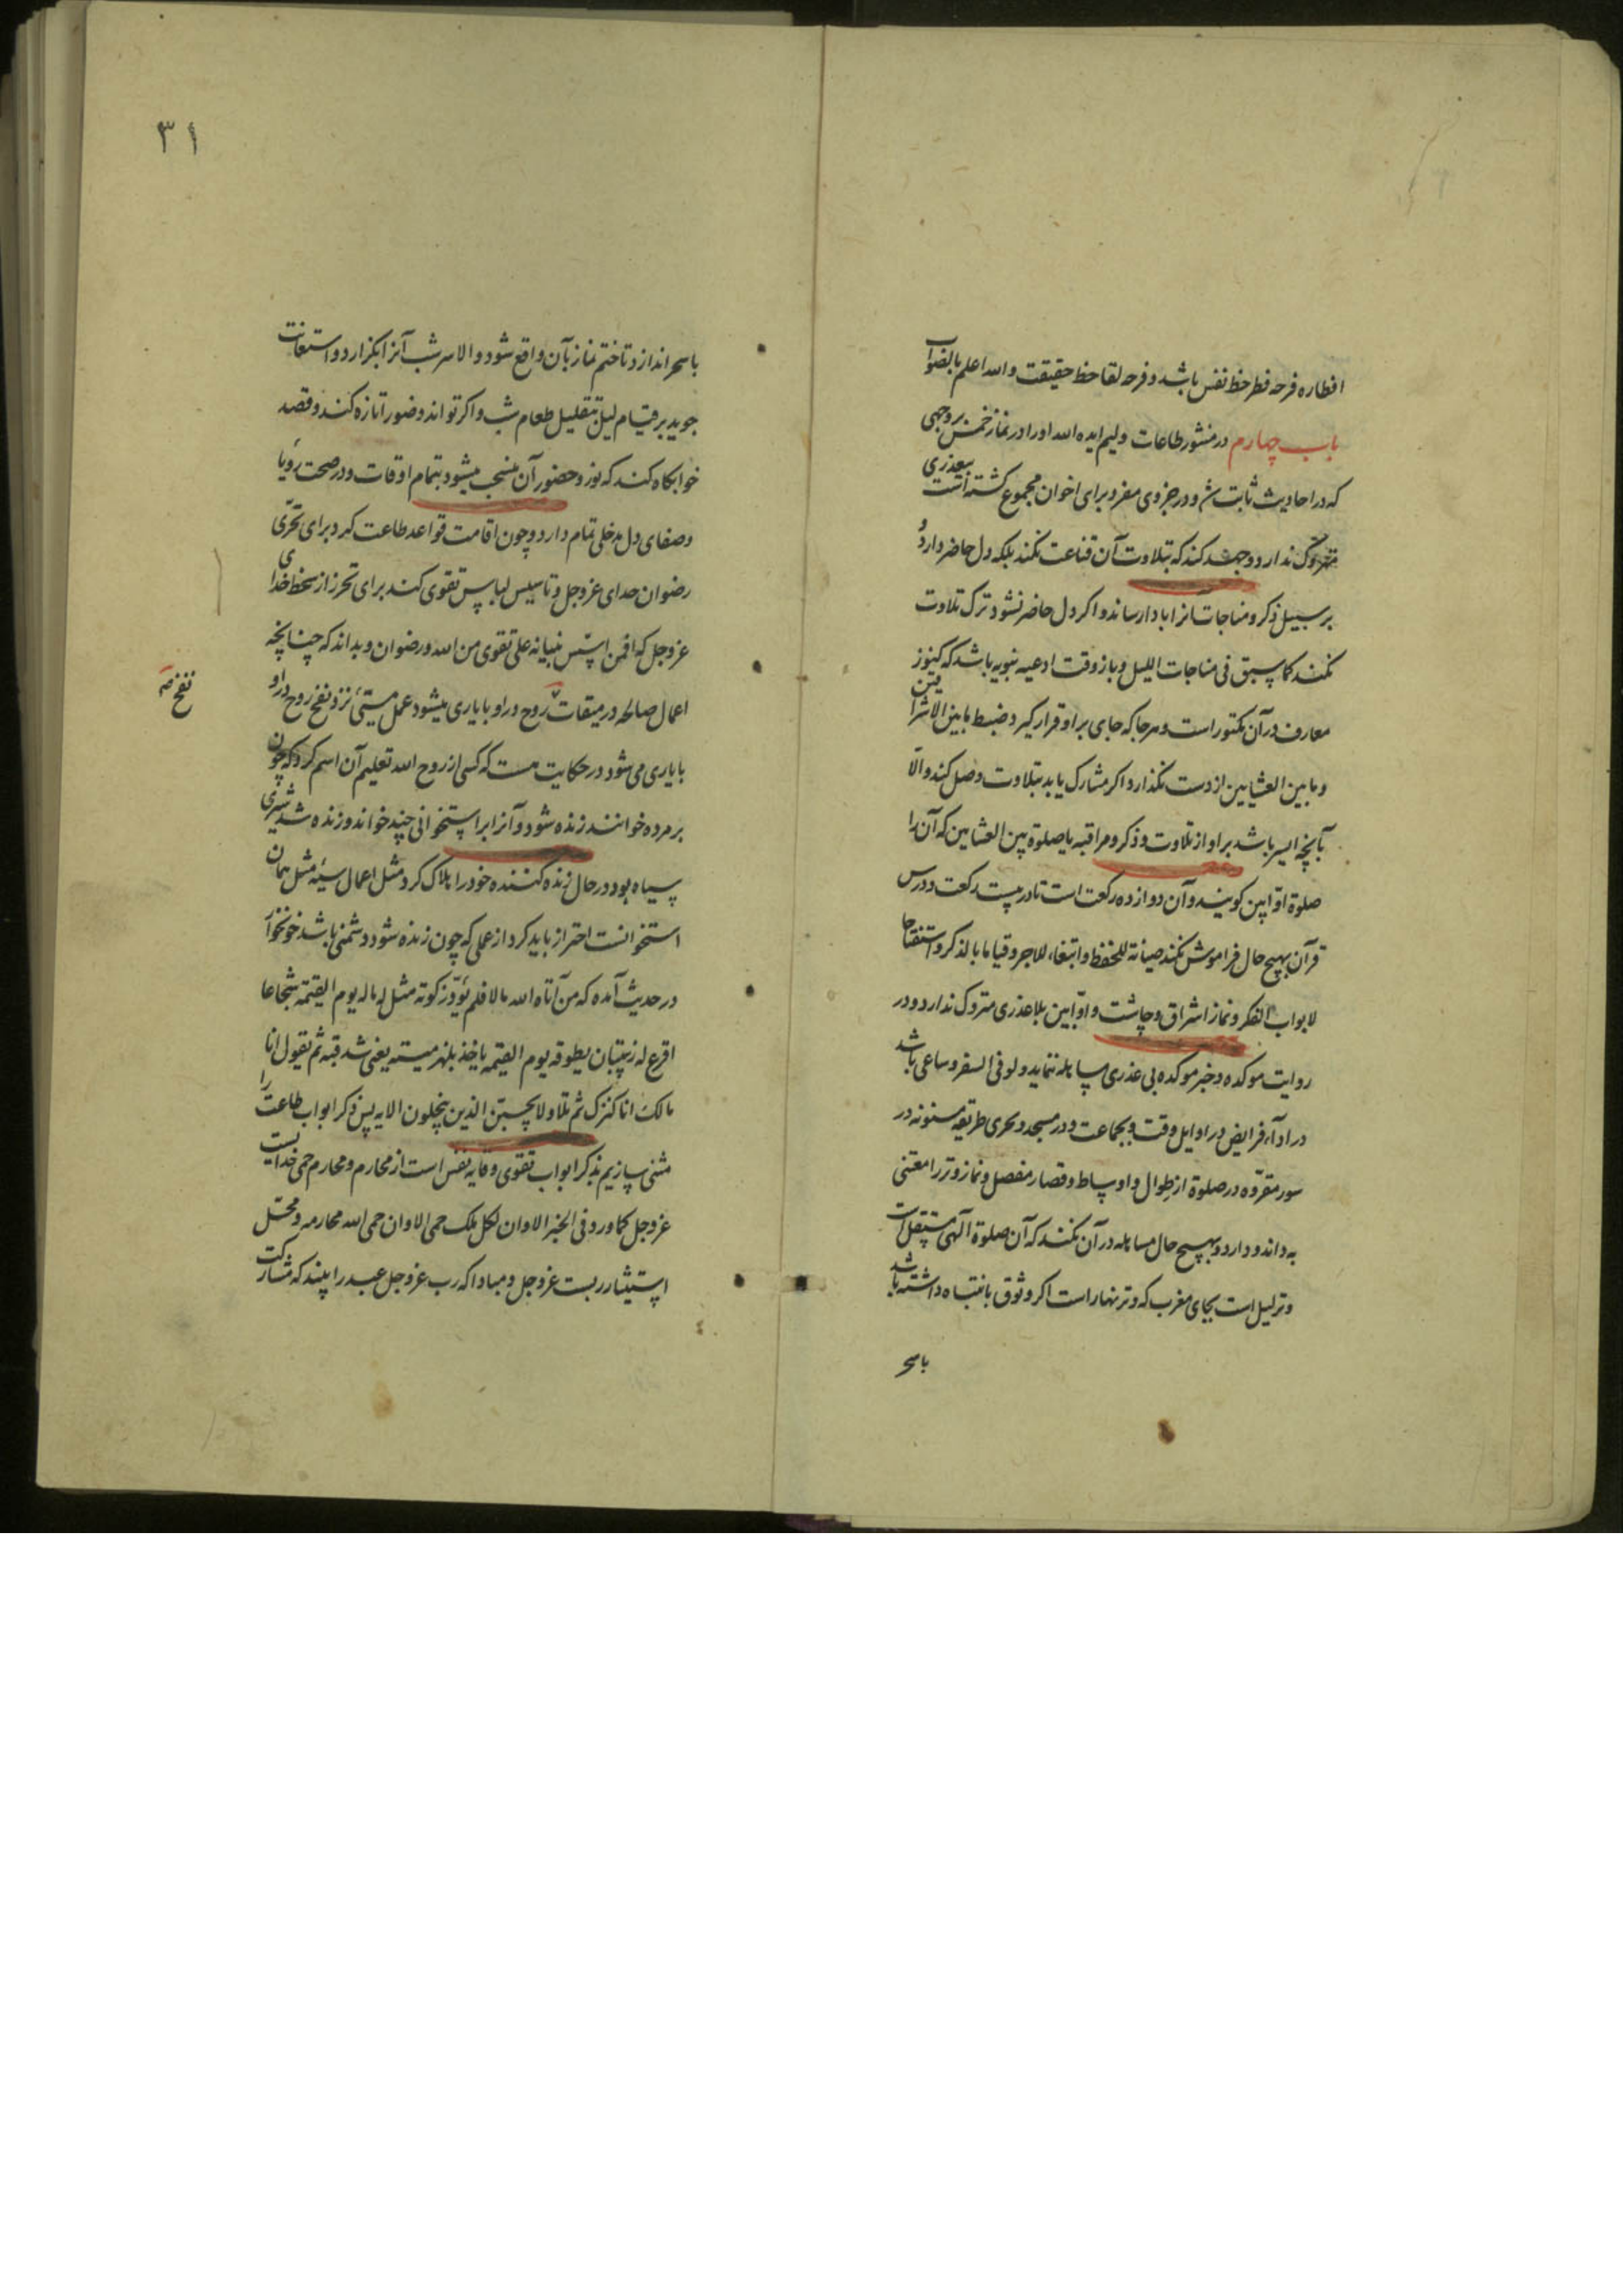 افطاره فرحه فطر حظ نفس باشد و فرحه لقا حظ حقیقت والله اعلم بالصواب
باب چهارم در منشور طاعات ولیم ایده الله اورا در نماز خمس بروجهی
که در احادیث ثابت شد و در جزوی مفرد برای اخوان مجموع کشته است بیعذری
متروک ندارد و جهد کند که بتلاوت آن قناعت نکند بلکه دل حاضر دارد و
بر سبیل ذکر و مناجات آنرا بادا رساند و اکر دل حاضر نشود ترک تلاوت
نکند کما سبق فی مناجات اللیل و باز وقت ادعیه نبویه باشد که کنوز
معارف در آن مکتور است و هرجا که جای بر او قرار کیرد ضبط مابین الاشراقین
و مابین العشایین از دست نکذارد اکر مشارک یابد بتلاوت وصل کند والّا
بآنچه ایسر باشد بر او از تلاوت و ذکر و مراقبه یا صلوة بین العشایین که آن را
صلوة اوّابین کویند و آن دوازده رکعت است تا در بیست رکعت و درس
قرآن بهیچ حال فراموش نکند صیانة للحفظ وابتغاء للاجر و قیاما بالذکر واستفتاحا
لابواب الفکر و نماز اشراق و چاشت و اوّابین بلا عذری متروک ندارد و در
روایت موکده و خبر موکده بی عذری مساهله ننماید ولو فی السفر و ساعی باشد
در ادآء فرایض در اوایل وقت و بجماعت و در مسجد و تحری طریقه مسنونه در
سور مقروه در صلوة از طوال و اوساط و قصار مفصل و نماز وتر را معتنی
به داند و دارد و بهیچ حال مساهله در آن نکند که آن صلوة آلهی مستقل است
و وتر لیل است بجای مغرب که وتر نهار است اکر وثوق بانتباه داشته باشد
با سحر
٣١
با سحر اندازد تا ختم نماز بآن واقع شود و الا سر شب آنرا بکزارد و استعانت
جوید بر قیام لیل بتقلیل طعام شب و اکر تواند وضو را تازه کند و قصد
خوابکاه کند که نور وحضور آن منسحب میشود بتمام اوقات و در صحت رؤیا
و صفای دل مدخلی تمام دارد و چون اقامت قواعد طاعت کرد برای تحرّی
رضوان خدای عز وجل و تاسیس لباس تقوی کند برای تحرز از سخط خدای
عز وجل که افمن اسّس بنیانه علی تقوی من الله و رضوان و بداند که چنانچه
اعمال صالحه در میقات روح در او با یاری میشود عمل سیّئ نزد نفخ روح در او
نفخ صح
با یاری می شود در حکایت هست که کسی از روح الله تعلیم آن اسم کرد که چون
بر مرده خوانند زنده شود و آنرا بر استخوانی چند خواند و زنده شد شیری
سیاه بود در حال زنده کننده خود را هلاک کرد مثل اعمال سیئه مثل همان
استخوانست احتراز باید کرد از عملی که چون زنده شود دشمنی باشد خونخوار
در حدیث آمده که من آتاه الله مالا فلم یؤدّ زکوته مثل له ماله یوم القیمة شجاعا
اقرع له زبیبتان یطوقه یوم القیمه یاخذ بلهزمیتیه یعنی شدقیه ثم یقول انا
مالک انا کنزک ثم تلا ولا یحسبن الذین یبخلون الایه پس ذکر ابواب طاعت را
مثنی سازیم بذکر ابواب تقوی وقایه نفس است از محارم و محارم حمی خدایست
عز وجل کما ورد فی الخبر الاوان لکل ملک حمی الاوان حمی الله محارمه و محل
استیثار ربست عز وجل و مبادا که رب عز وجل عبد را بیند که مشارکت